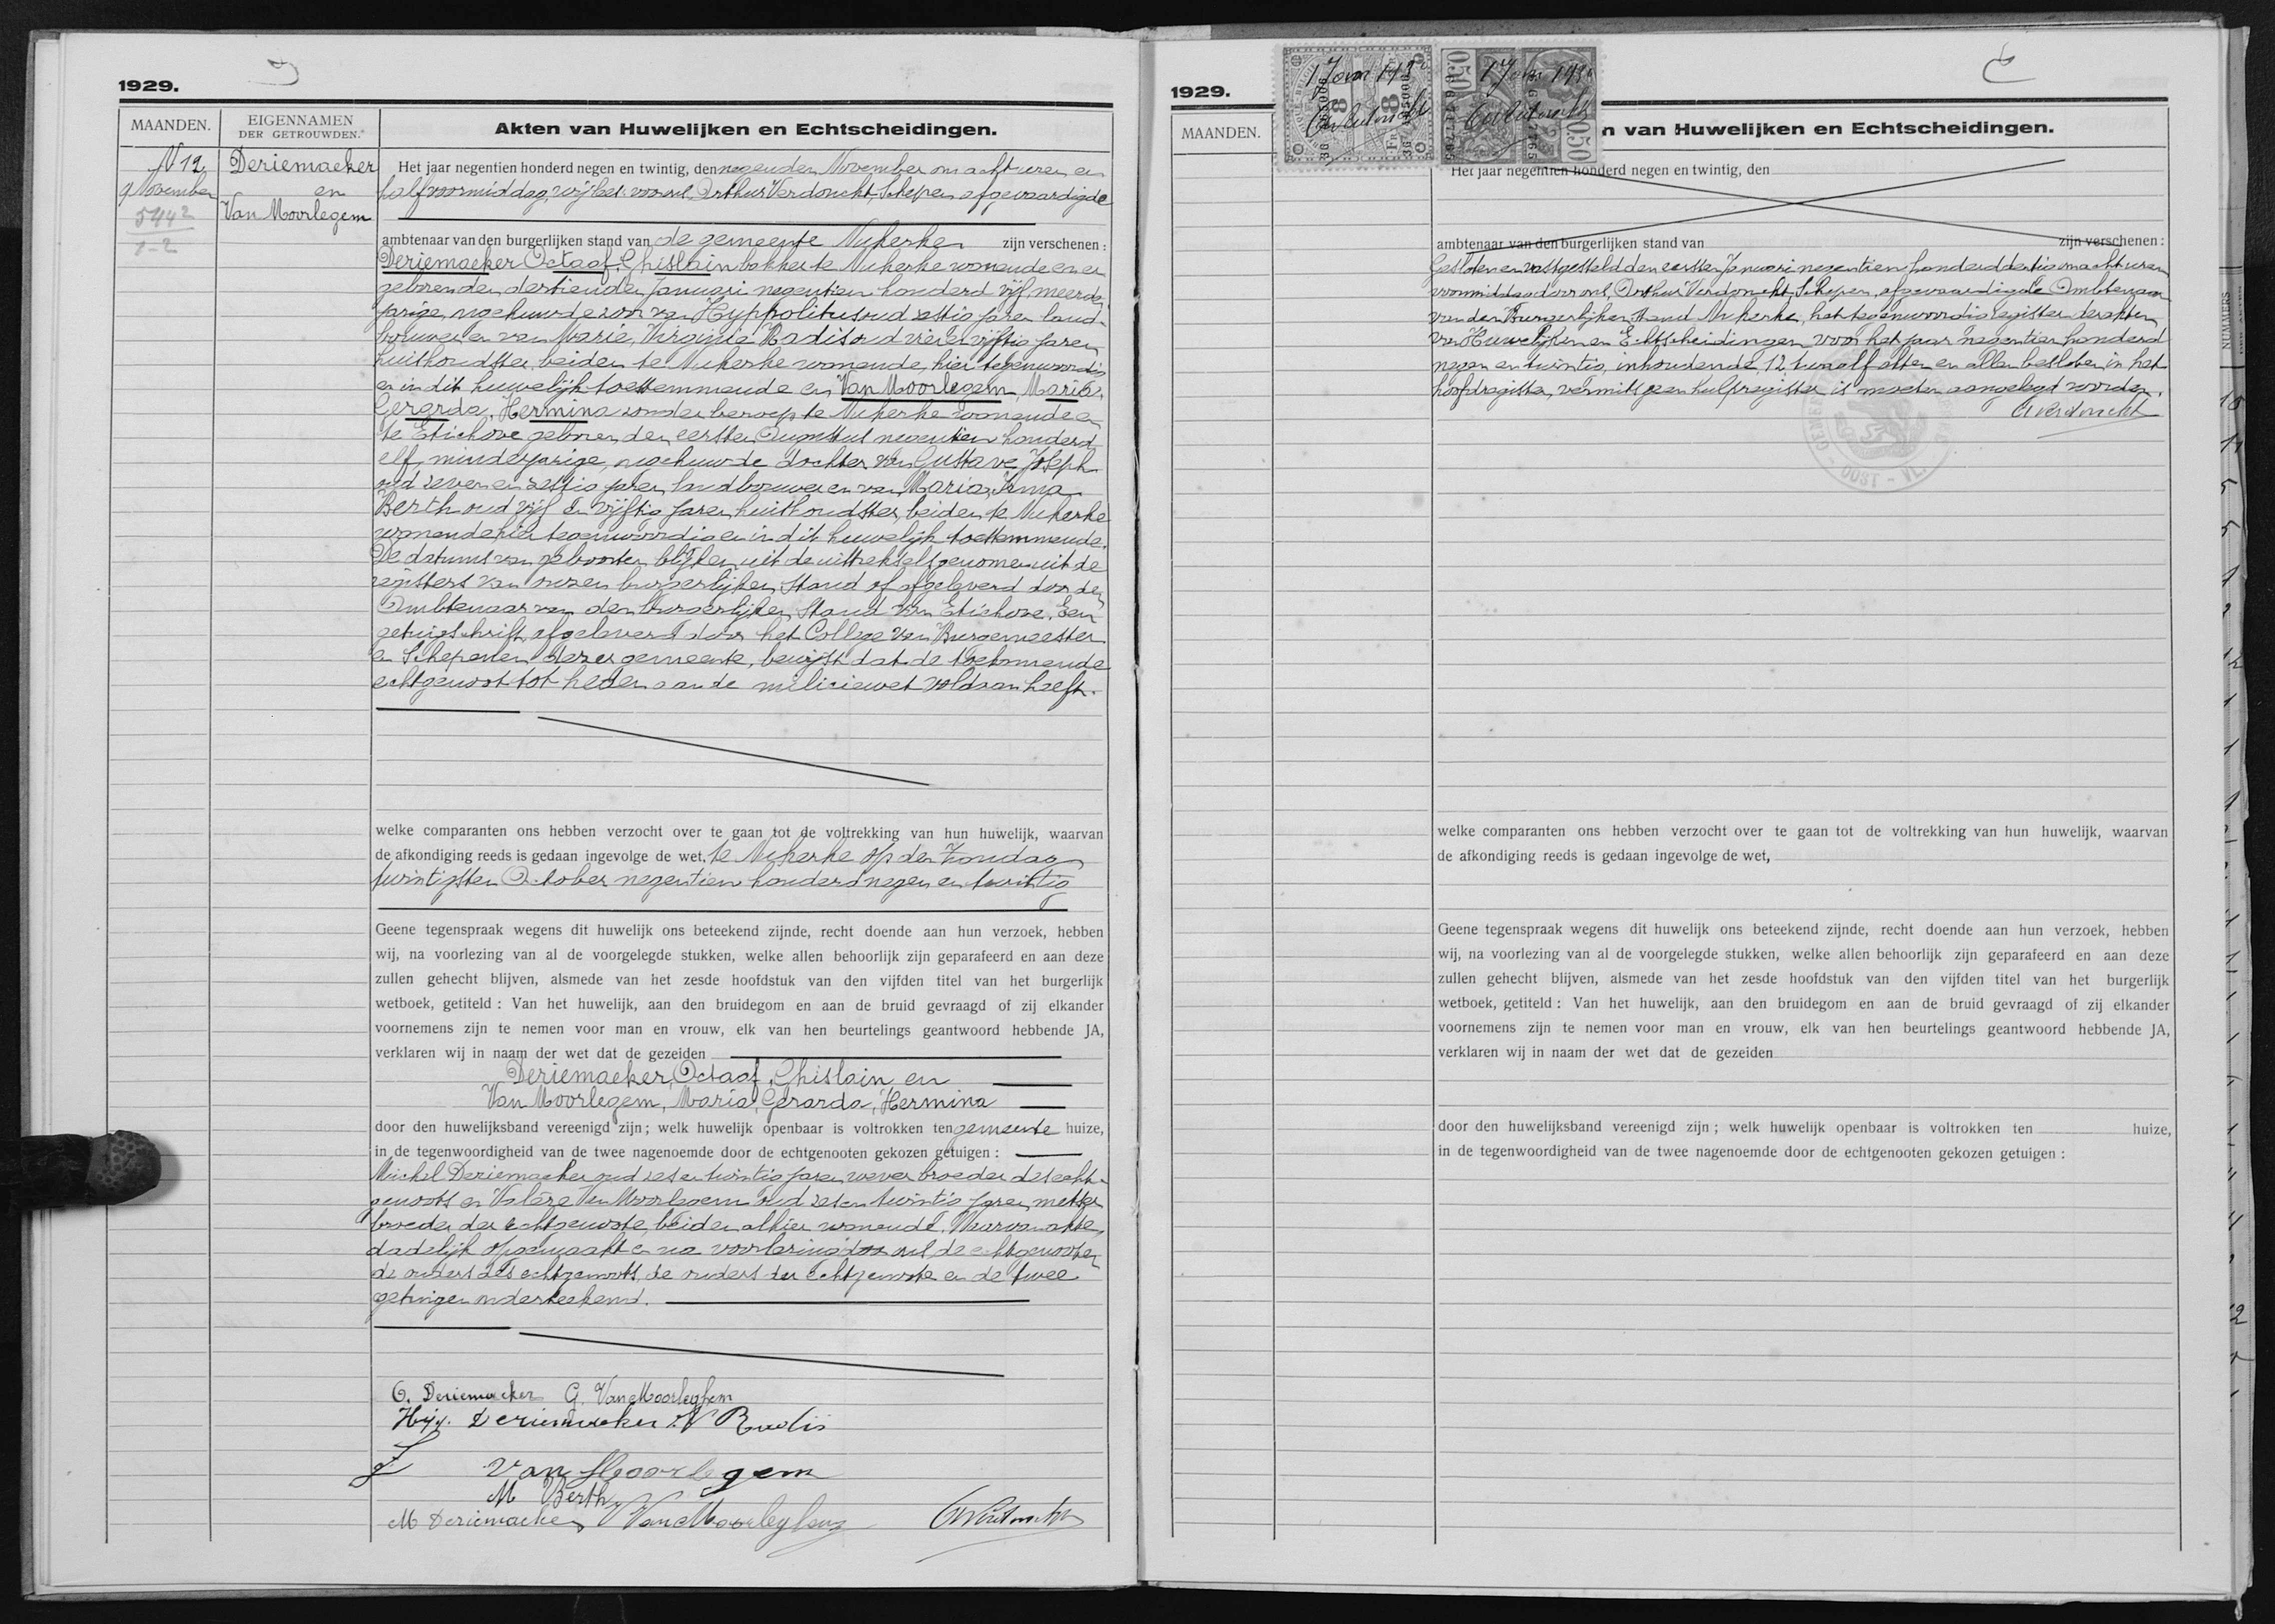 1929.
MAANDEN.
EIGENNAMEN
DER GETROUWDEN.
Akten van Huwelijken en Echtscheidingen.
N 12
9 November
5442
1-2
Deriemaeker
en
Van Moorlegem
Het jaar negentien honderd negen en twintig, den negenden November om acht uren en
half voormiddag, wij Arthur Verdonckt, Schepen afgevaardigde
ambtenaar van den burgerlijken stand van de gemeente Nukerke zijn verschenen :
Deriemaeker Octaaf, Ghislain bakker te Nukerke wonende en er
geboren den dertienden Januari negentien honderd vijf, meerder-
jarige, ongehuwde zoon van Hyppolitus oud zestig jaren land-
bouwer en van Marie, Virginia Radis oud vier en vijftig jaren
huishoudster, beiden te Nukerke wonende, hier tegenwoordig
en in dit huwelijk toestemmende en Van Moorlegem, Maria,
Gerarda, Hermina zonder beroep te Nukerke wonende en
te Etichove geboren den eersten Augustus negentien honderd
elf, minderjarige, ongehuwde dochter van Gustave Joseph
oud zeven en zestig jaren landbouwer en van Maria, Irma
Berth oud vijf en vijftig jaren, huishoudster, beiden te Nukerke
wonende hier tegenwoordig en in dit huwelijk toestemmende.
De datums van geboorten blijken uit de uittreksels genomen uit de
registers van onzen burgerlijken Stand of afgeleverd door den
Ambtenaar van den burgerlijken Stand van Etichove. Een
getuigschrift, afgeleverd door het College van Burgemeester
en Schepenen dezer gemeente, bewijst dat de toekomende
echtgenoot tot heden aan de miliciewet voldaan heeft.
welke comparanten ons hebben verzocht over te gaan tot de voltrekking van hun huwelijk, waarvan
de afkondiging reeds is gedaan ingevolge de wet, te Nukerke op den Zondag
twintigsten October negentien honderd negen en twintig
Geene tegenspraak wegens dit huwelijk ons beteekend zijnde, recht doende aan hun verzoek, hebben
wij, na voorlezing van al de voorgelegde stukken, welke allen behoorlijk zijn geparafeerd en aan deze
zullen gehecht blijven, alsmede van het zesde hoofdstuk van den vijfden titel van het burgerlijk
wetboek, getiteld : Van het huwelijk, aan den bruidegom en aan de bruid gevraagd of zij elkander
voornemens zijn te nemen voor man en vrouw, elk van hen beurtelings geantwoord hebbende JA,
verklaren wij in naam der wet dat de gezeiden
Deriemaeker, Octaaf, Ghislain en
Van Moorlegem, Maria, Gerarda, Hermina
door den huwelijksband vereenigd zijn ; welk huwelijk openbaar is voltrokken ten gemeente huize,
in de tegenwoordigheid van de twee nagenoemde door de echtgenooten gekozen getuigen :
Michel Deriemaeker oud zes en twintig jaren wever broeder des echt-
genoots en Valère Van Moorlegem oud zes en twintig jaren, metser
broeder der echtgenoote, beiden alhier wonende. Waarvan akte,
dadelijk opgemaakt en na voorlezing door ons, de echtgenooten
de ouders des echtgenoots, de ouders der echtgenoote en de twee
getuigen onderteekend.
O. Deriemaeker G. Van Moorleghem
Hyp. Deriemaeker V Radis
Van Moorlegem
M Berth
M Deriemaeker V Van Moorleghem AVerdonckt
1929.
1 Jan 1930
AVerdonckt
1 Jan 1930
AVerdonckt
MAANDEN.
n van Huwelijken en Echtscheidingen.
Het jaar negentien honderd negen en twintig, den
ambtenaar van den burgerlijken stand van zijn verschenen :
Gesloten en vastgesteld den eersten Januari negentien honderd dertig om acht uren
voormiddag door ons, Arthur Verdonckt, Schepen, afgevaardigde Ambtenaar
van den Burgerlijken Stand Nukerke, het tegenwoordig register der akten
van Huwelijken en Echtscheidingen voor het jaar negentien honderd
negen en twintig, inhoudende 12 twaalf akten en allen besloten in het
hoofdregister, vermits geen hulpregister is moeten aangelegd worden.
AVerdonckt
OOST - VL.
welke comparanten ons hebben verzocht over te gaan tot de voltrekking van hun huwelijk, waarvan
de afkondiging reeds is gedaan ingevolge de wet,
Geene tegenspraak wegens dit huwelijk ons beteekend zijnde, recht doende aan hun verzoek, hebben
wij, na voorlezing van al de voorgelegde stukken, welke allen behoorlijk zijn geparafeerd en aan deze
zullen gehecht blijven, alsmede van het zesde hoofdstuk van den vijfden titel van het burgerlijk
wetboek, getiteld : Van het huwelijk, aan den bruidegom en aan de bruid gevraagd of zij elkander
voornemens zijn te nemen voor man en vrouw, elk van hen beurtelings geantwoord hebbende JA,
verklaren wij in naam der wet dat de gezeiden
door den huwelijksband vereenigd zijn ; welk huwelijk openbaar is voltrokken ten huize,
in de tegenwoordigheid van de twee nagenoemde door de echtgenooten gekozen getuigen :
NUMMERS